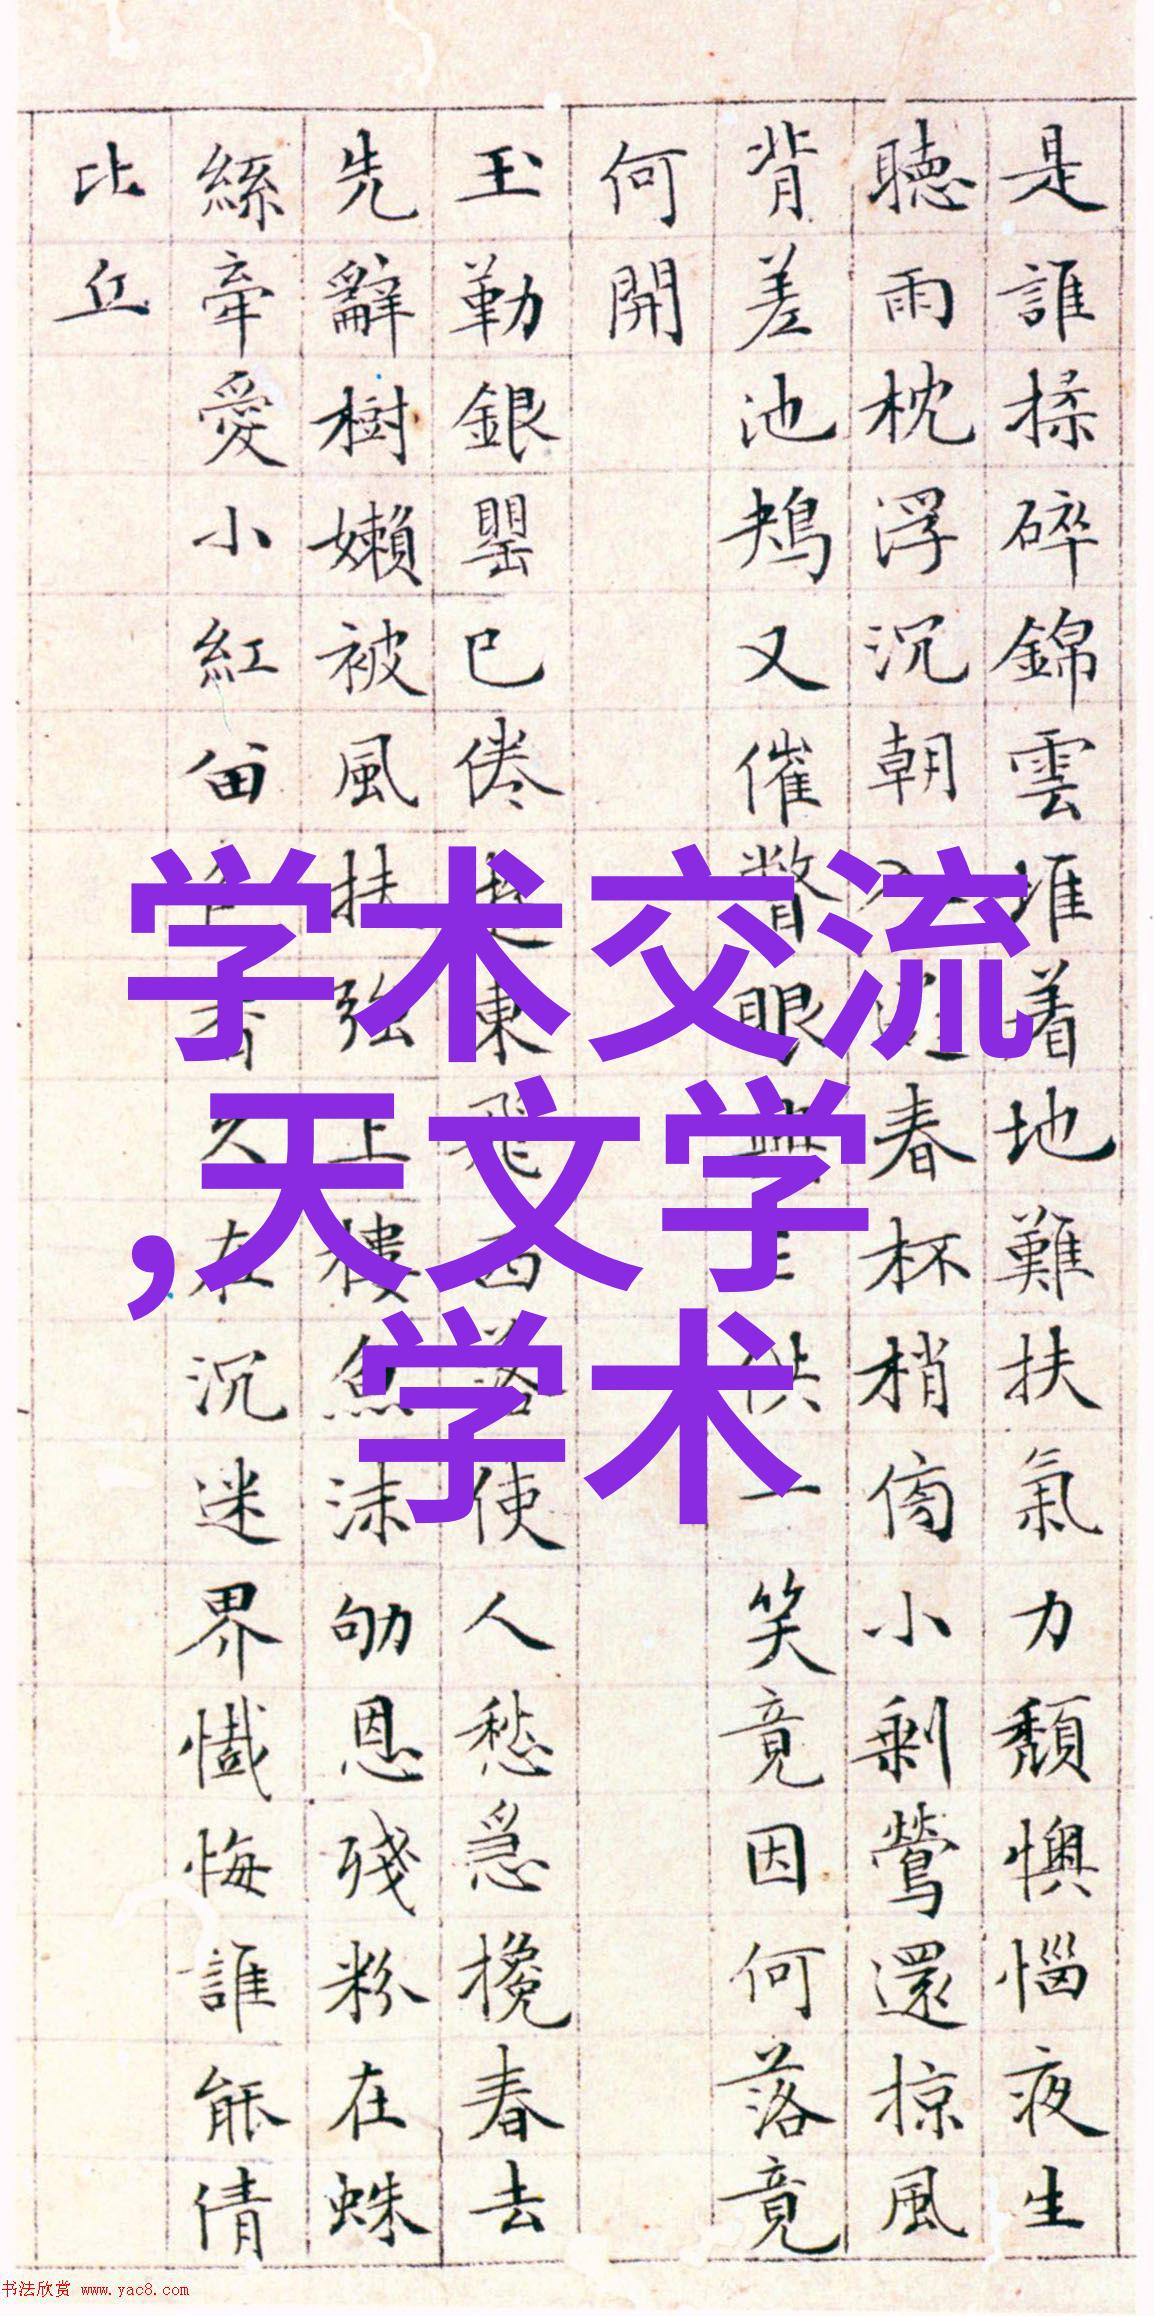 是誰揉碎錦雲堆着地難扶氣力頹懊惱夜生
聴雨枕浮沉朝春杯梢小剩鶯還掠風
背差池鳺又催瞥眼供一笑竟因何落竟
何開
玉勒銀罌已倦東飛西落使人愁急攙春去
先辭樹嬾被風扶強上樓魚沫劬恩殘粉在蛛
絲牽愛小紅香久在沉迷界懺悔誰能倩
比丘
学术交流
,天文学
学术
书法欣赏 www.yac8.com